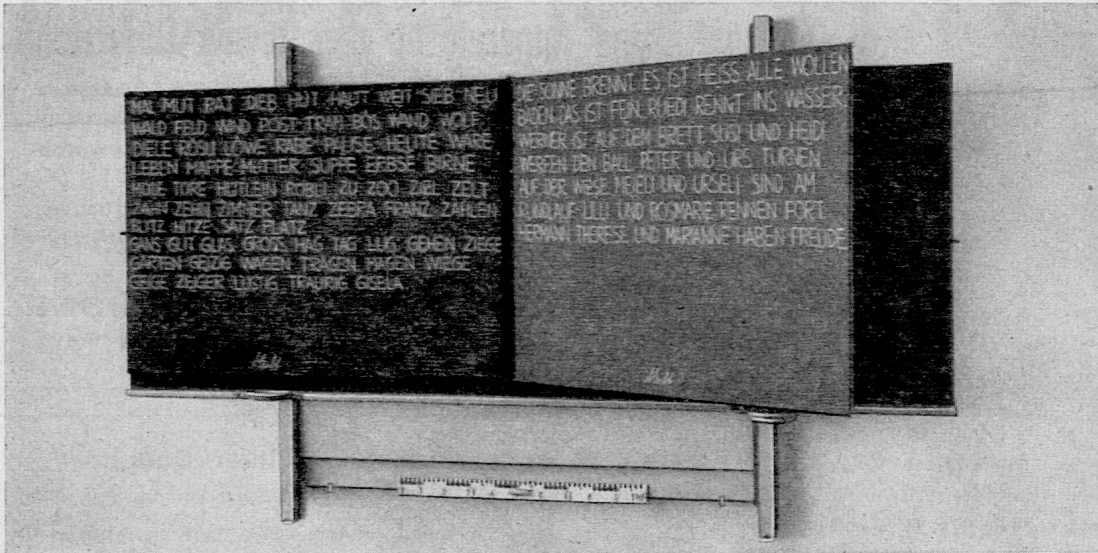 MAL MUT RAT DIEB HUT HAUT WEIT SIEB NEU
WALD FELD WIND POST TRAM BÖS WAND WOLF
DIELE RÖSLI LÖWE RABE PAUSE HEUTE WARE
LEBEN MAPPE MUTTER SUPPE ERBSE BIRNE
TORE HÜTLEIN RÖBELI ZU ZOO ZIEL ZELT
ZEHN ZIMMER TANZ ZEBRA FRANZ ZAHLEN
BLITZ HITZE SATZ PLATZ
GANS GUT GLAS GROSS HAG TAG LUG GEHEN ZIEGE
GARTEN WAGEN TRAGEN MAGEN WIEGE
GEIGE ZEIGER LUSTIG TRAURIG GISELA
DIE SONNE BRENNT ES IST HEISS ALLE WOLLEN
BADEN DAS IST FEIN RUEDI RENNT INS WASSER
WERNER IST AUF DEM BRETT SUSI UND HEIDI
WERFEN DEN BALL PETER UND URS TURNEN
AUF DER WIESE MEIELI UND URSELI SIND AM
RUNDLAUF LILLI UND ROSMARIE RENNEN FORT
HERMANN THERESE UND MARIANNE HABEN FREUDE